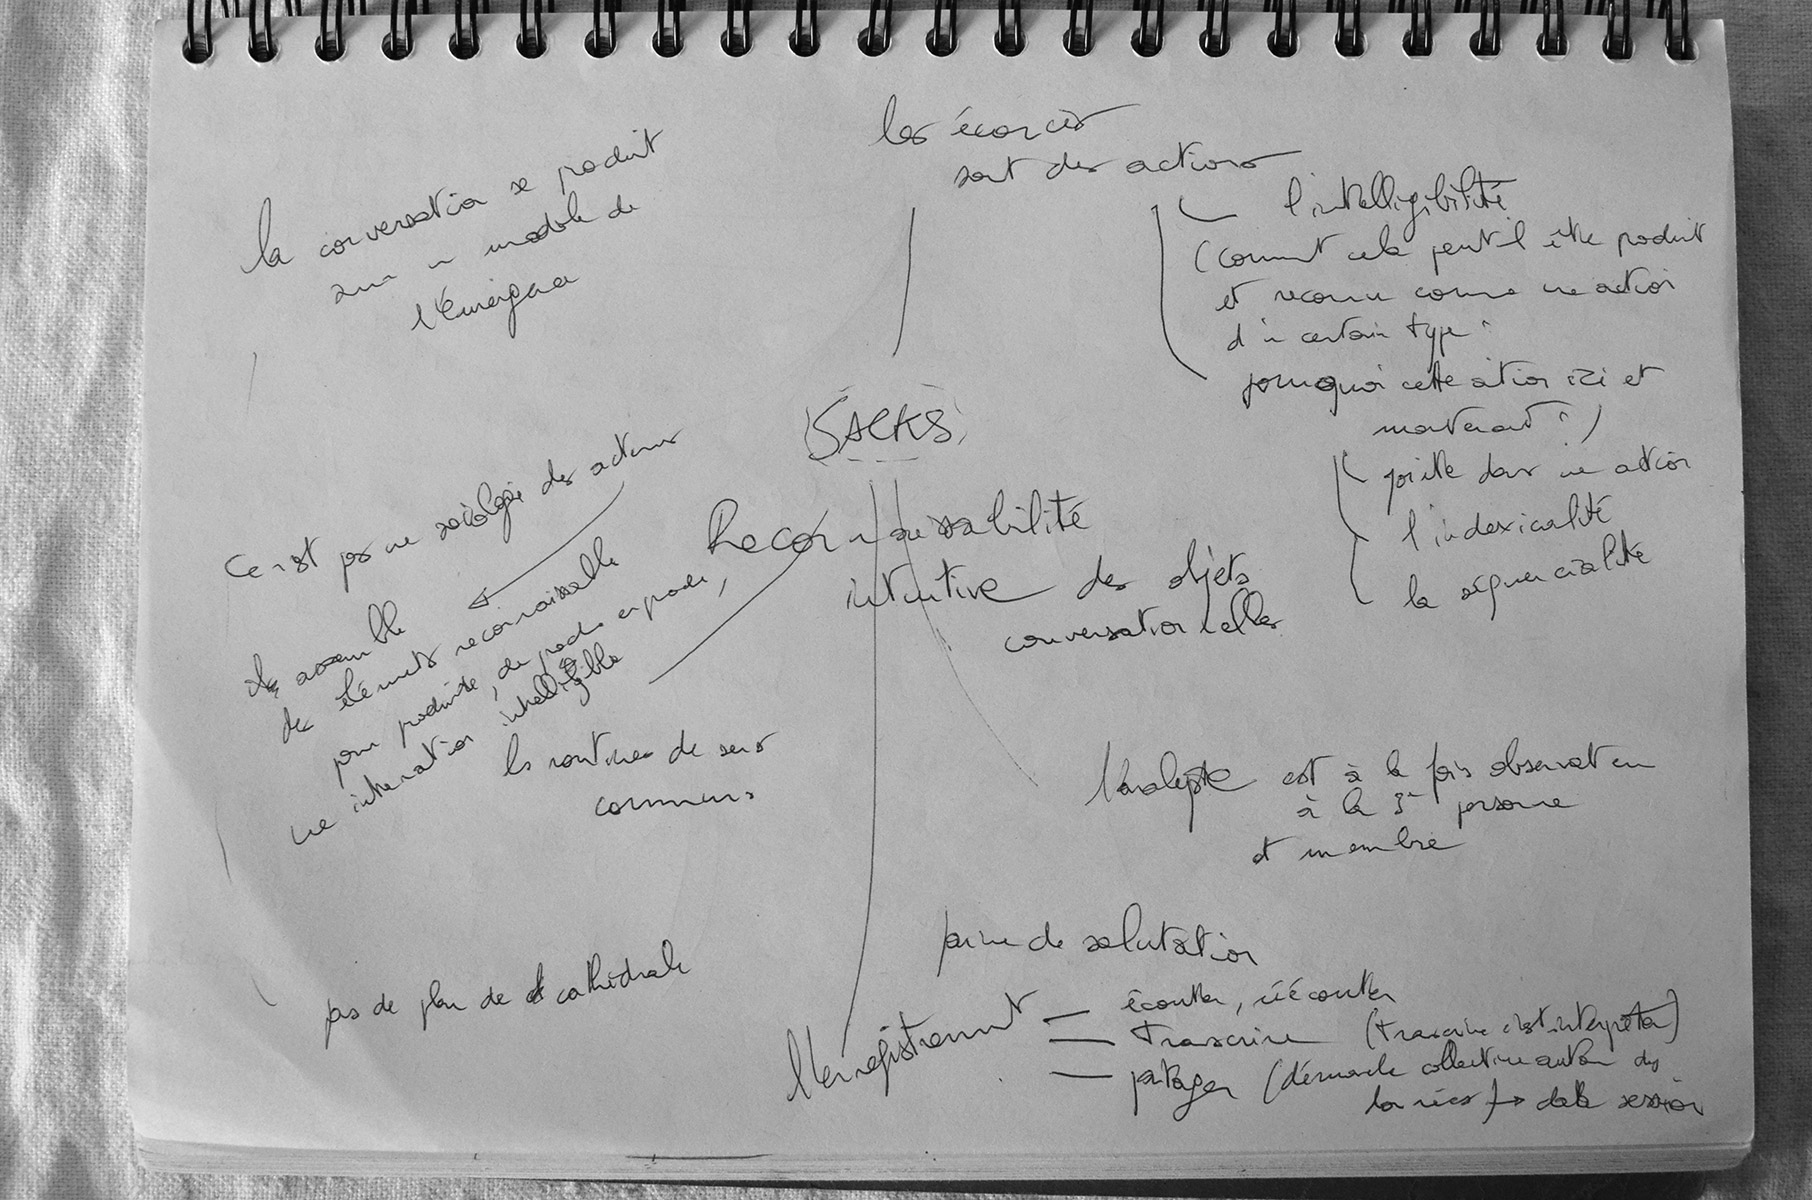 les énoncés
sont des actions
la conversation se produit
sur un modèle de
l'émergence
l'intelligibilité
(comment cela peut-il être produit
et reconnu comme une action
d'un certain type ?
pourquoi cette action ici et
maintenant ?)
dans une action
l'indexicalité
la séquencialité
SACKS
Reconnaissabilité
intuitive des objets
conversationnelles
Ce n'est pas une sociologie des acteurs
ils assemble
des éléments reconnaissable
pour produire, de proche en proche,
une interaction intelligible
les routines de sens
commun
l'analyste est à la fois observateur
à la 3e personne
et membre
pas de plan de cathédrale
paire de salutation
l'enregistrement
écouter, réécouter
transcrire (transcrire c'est interpréter)
partager (démarche collective autour des
données) → data session